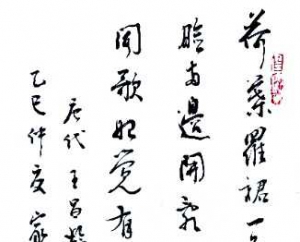 荷葉羅裙一
臉兩邊開亂
聞歌始覺有
唐代王昌齡
乙巳仲夏